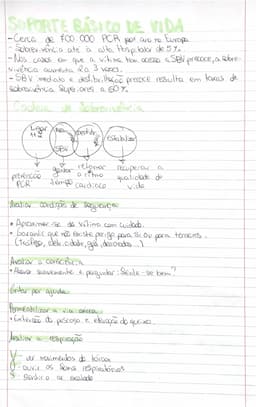 SUPORTE BÁSICO DE VIDA
- Cerca de 700.000 PCR por ano na Europa
- Sobrevivência até à alta hospitalar de 5%.
- Nos casos em que a vítima tem acesso a SBV precoce, a sobre-
vivência aumenta 2 a 3 vezes.
- SBV imediato e desfibrilhação precoce resulta em taxas de
sobrevivência superiores a 60%.
Cadeia de Sobrevivência
Ligar
SBV
estabilizar
prevenção ganhar retomar recuperar a
PCR tempo o ritmo qualidade de
cardíaco vida
Avaliar condições de segurança
• Aproximar-se da vítima com cuidado.
• Garantir que não existe perigo para si ou para terceiros.
(Tráfego, eletricidade, gás,
Avaliar a consciência
• Abanar suavemente e perguntar: Sente-se bem?
Gritar por ajuda
Permeabilizar a via aérea
• Extensão do pescoço e elevação do queixo.
Avaliar a respiração
V - ver movimentos do tórax
O - ouvir os sons respiratórios
S - sentir o ar exalado